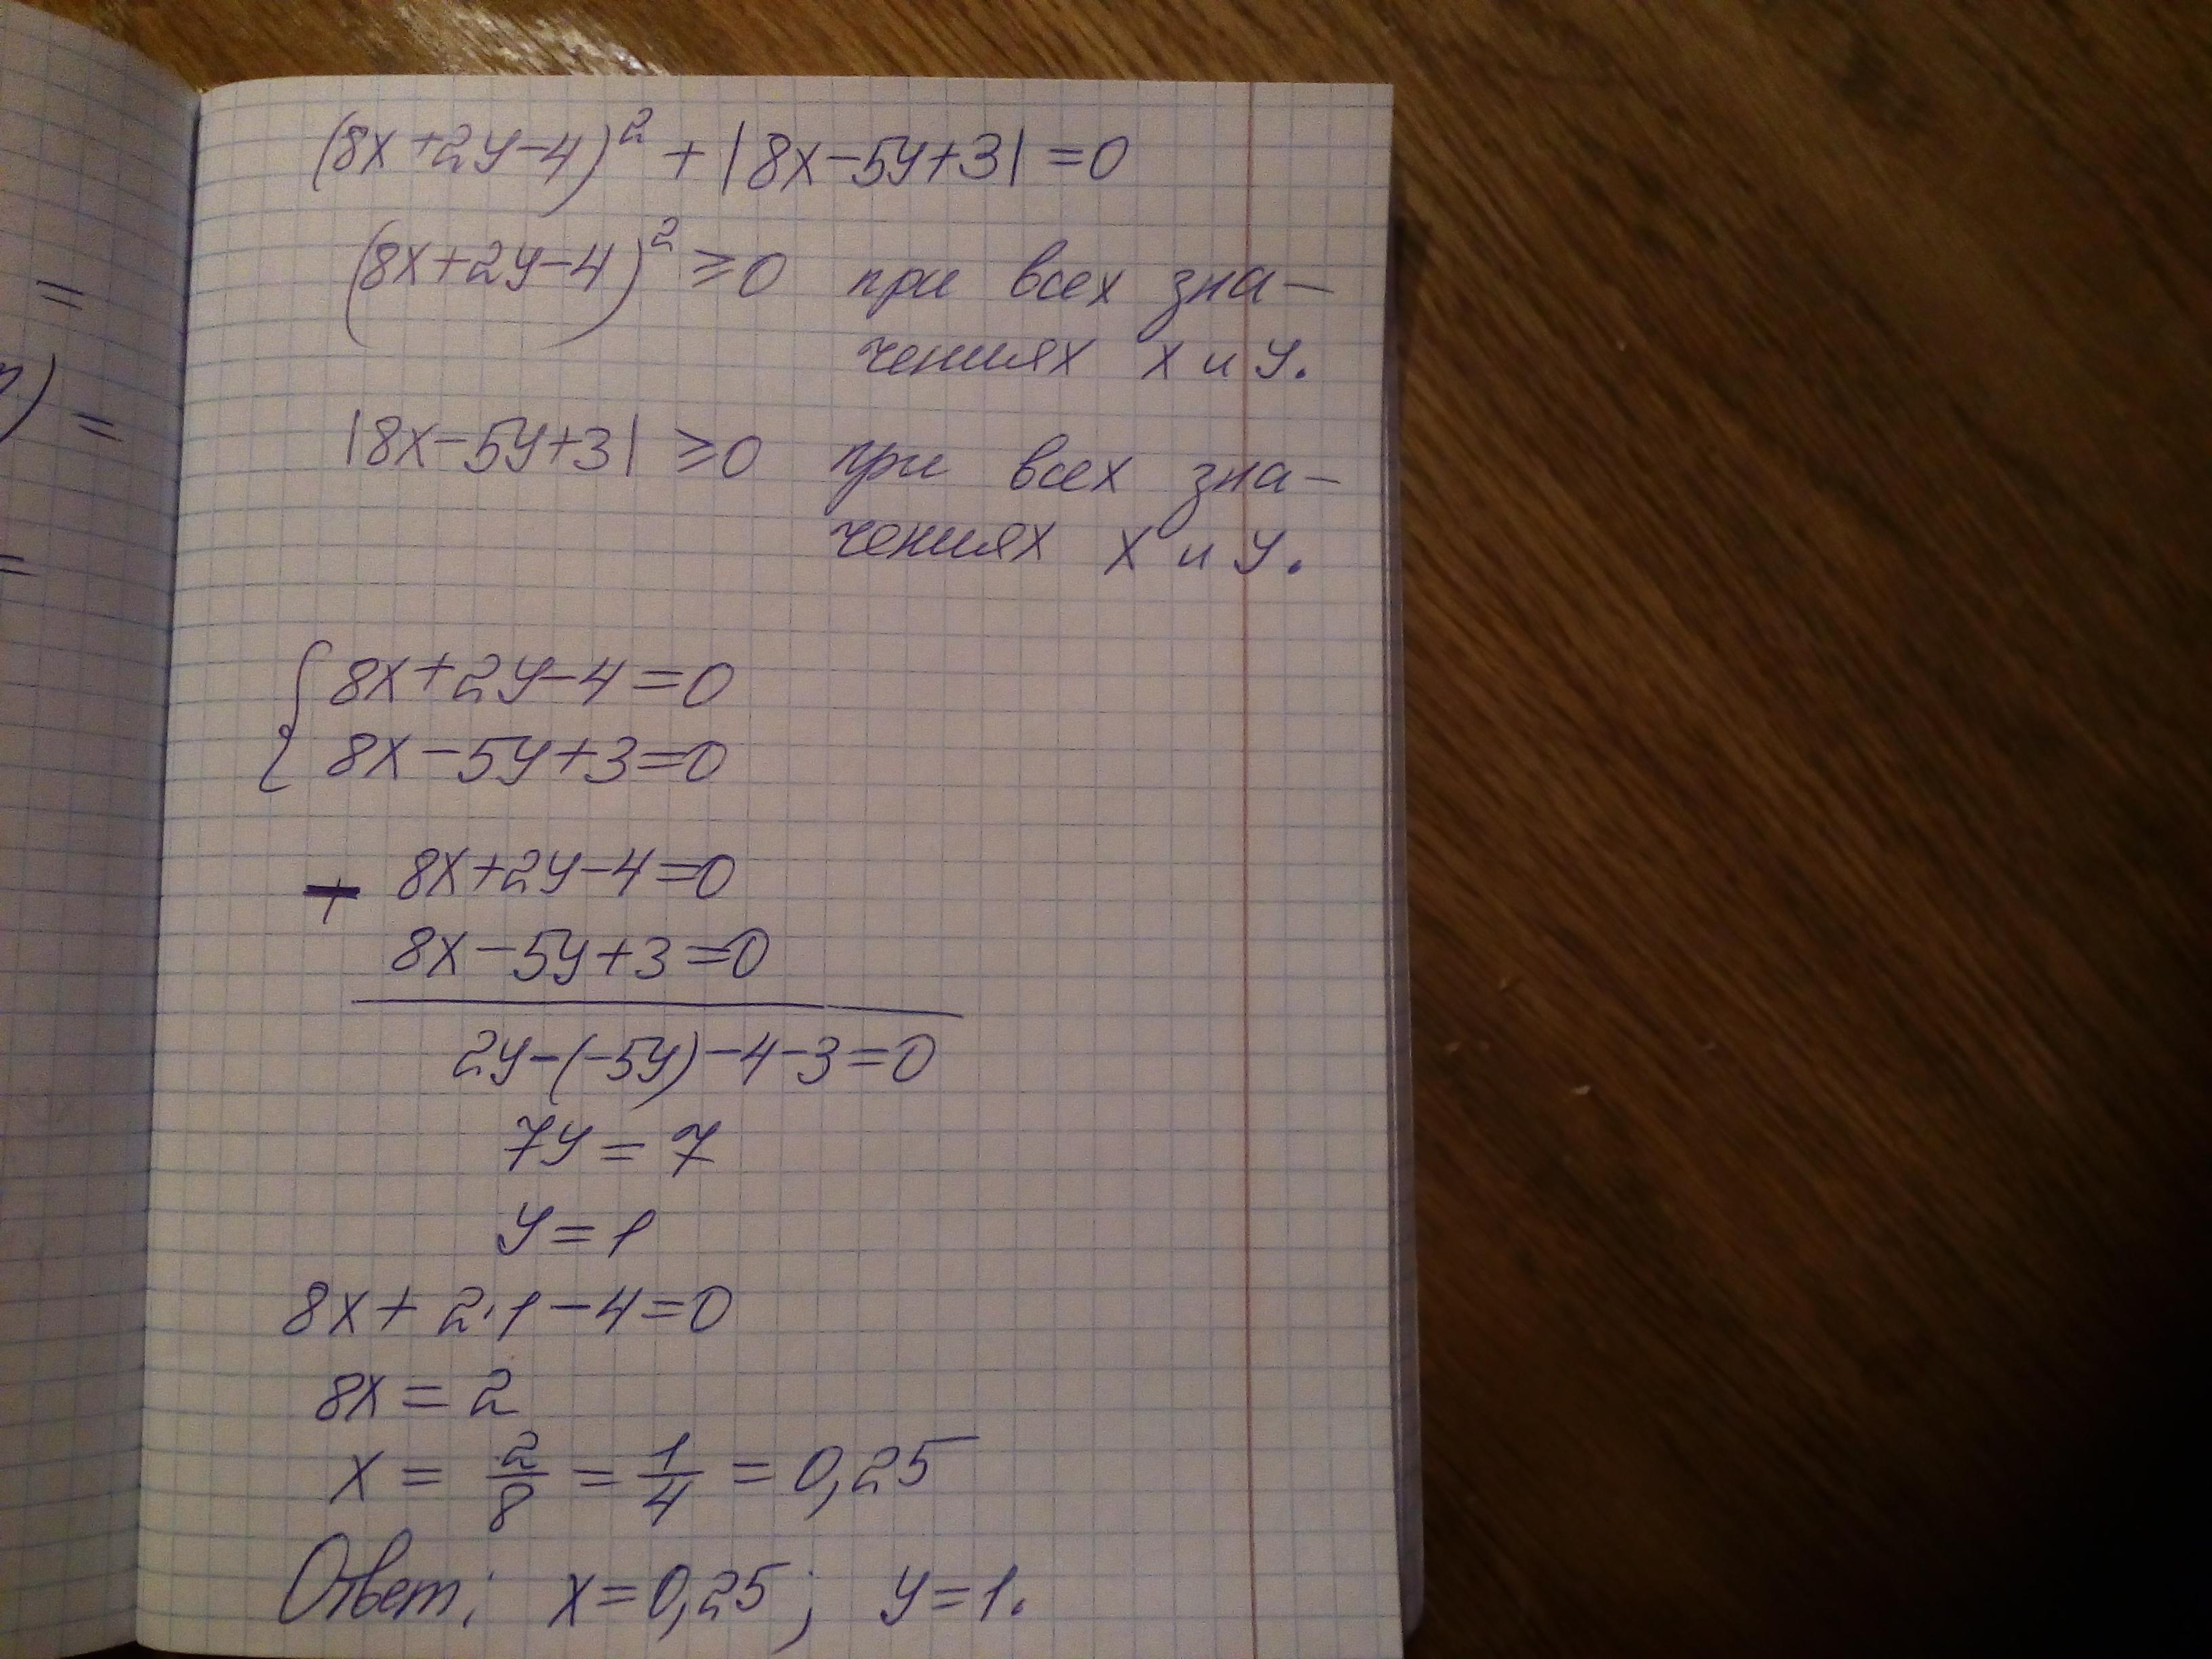 (8x+2y-4)² + |8x-5y+3| = 0
(8x+2y-4)² ≥ 0 при всех зна-
чениях x и y.
|8x-5y+3| ≥ 0 при всех зна-
чениях x и y.
{ 8x+2y-4=0
8x-5y+3=0
- 8x+2y-4=0
8x-5y+3=0
2y-(-5y)-4-3=0
7y = 7
y = 1
8x + 2·1 - 4 = 0
8x = 2
x = 2/8 = 1/4 = 0,25
Ответ: x=0,25; y=1.
=
) =
=